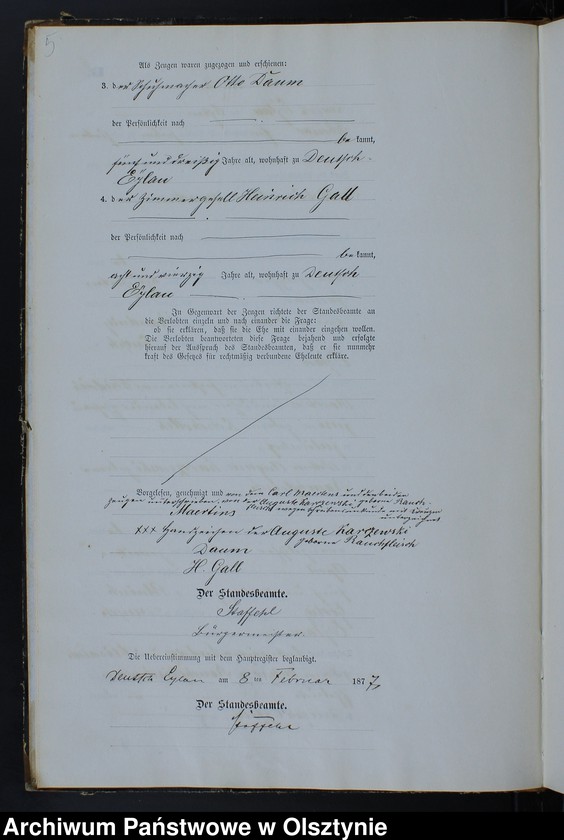 5
Als Zeugen waren zugezogen und erschienen:
3. der Schuhmacher Otto Daum
der Persönlichkeit nach
bekannt,
fünf und dreißig Jahre alt, wohnhaft zu Deutsch-
Eylau
4. der Zimmergesell Heinrich Gall
der Persönlichkeit nach
bekannt,
acht und vierzig Jahre alt, wohnhaft zu Deutsch
Eylau
In Gegenwart der Zeugen richtete der Standesbeamte an
die Verlobten einzeln und nach einander die Frage:
ob sie erklären, daß sie die Ehe mit einander eingehen wollen.
Die Verlobten beantworteten diese Frage bejahend und erfolgte
hierauf der Ausspruch des Standesbeamten, daß er sie nunmehr
kraft des Gesetzes für rechtmäßig verbundene Eheleute erkläre.
Vorgelesen, genehmigt und von dem Carl Maertens und den beiden
Zeugen unterschrieben, von der Auguste Karzewski geborne Rauch-
fleisch wegen Schreibensunkunde mit Kreuzen
unterzeichnet
Maertins
xxx Handzeichen der Auguste Karzewski
geborne Rauchfleisch
Daum
H. Gall
Der Standesbeamte.
Staffehl
Bürgermeister.
Die Uebereinstimmung mit dem Hauptregister beglaubigt.
Deutsch Eylau am 8 ten Februar 1877
Der Standesbeamte.
Staffehl
Archiwum Państwowe w Olsztynie